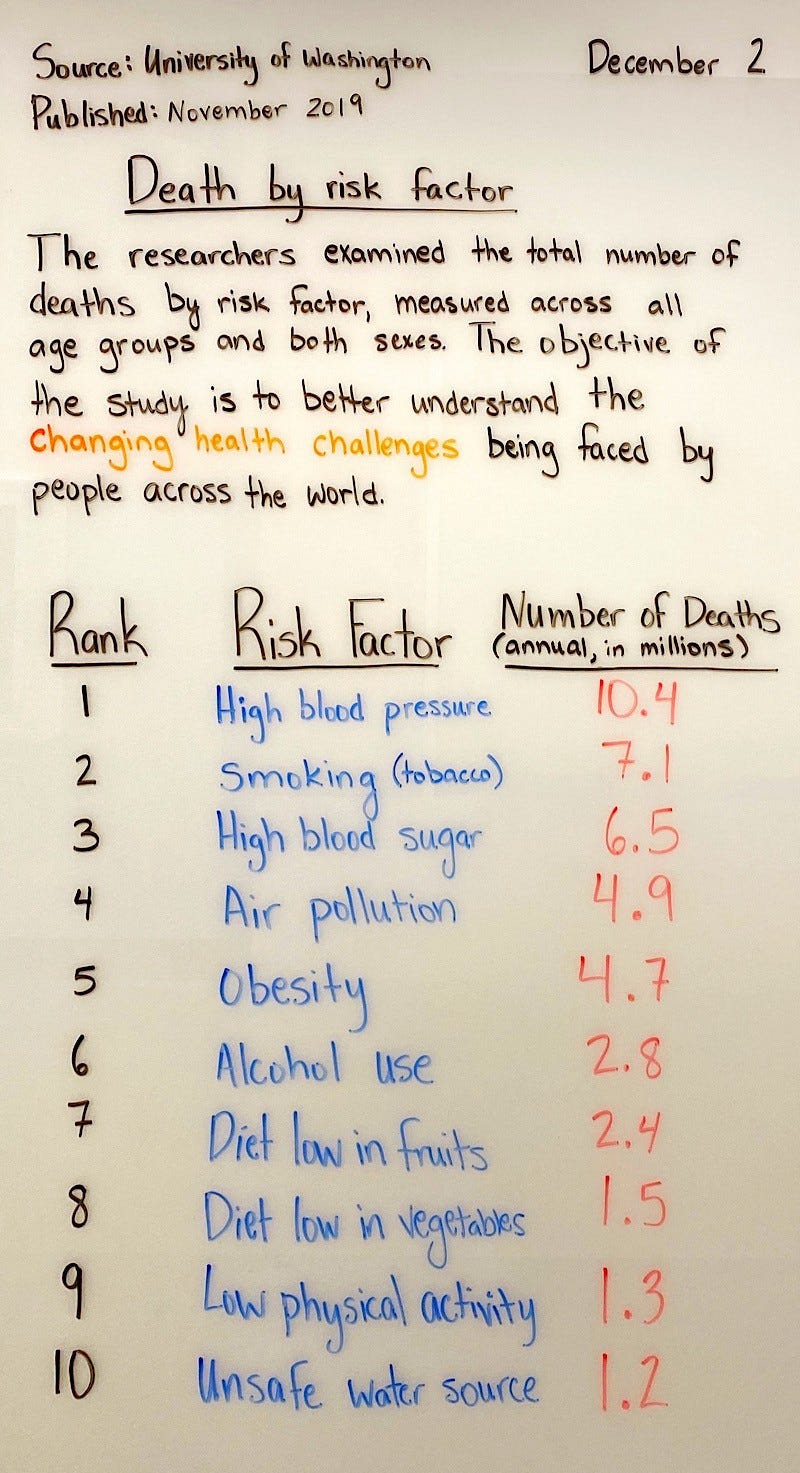 Source: University of Washington
December 2
Published: November 2019
Death by risk factor
The researchers examined the total number of
deaths by risk factor, measured across all
age groups and both sexes. The objective of
the study is to better understand the
changing health challenges being faced by
people across the world.
Rank Risk Factor Number of Deaths
(annual, in millions)
1 High blood pressure 10.4
2 Smoking (tobacco) 7.1
3 High blood sugar 6.5
4 Air pollution 4.9
5 Obesity 4.7
6 Alcohol use 2.8
7 Diet low in fruits 2.4
8 Diet low in vegetables 1.5
9 Low physical activity 1.3
10 Unsafe water source 1.2